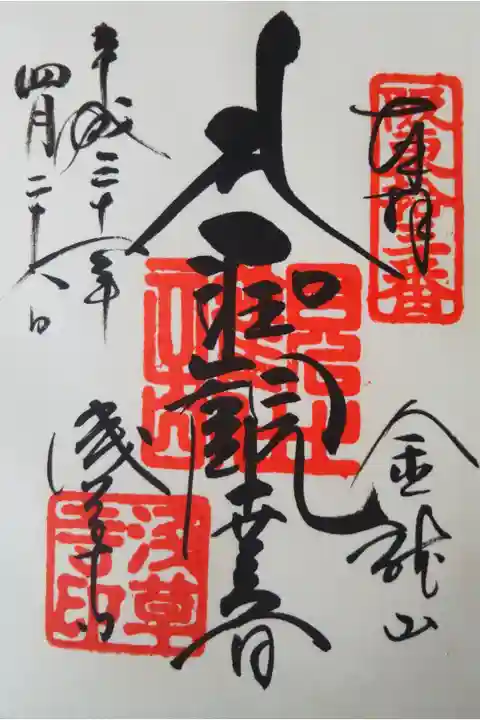 奉拝
阪東拾三番
金龍山
聖観世音
平成三十一年
四月二十八日
浅草寺
浅草寺印